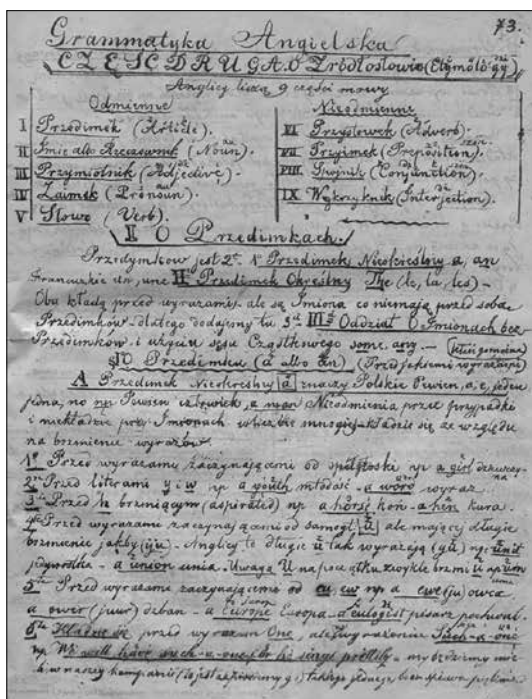 73.
Grammatyka Angielska
CZĘŚĆ DRUGA. O Źródłosłowie (Etymology)
Anglicy liczą 9 części mowy
Odmienne Nieodmienne
I Przedimek (Article). VI Przysłówek (Adverb).
II Imie albo Rzeczownik (Noun). VII Przyimek (Preposition).
III Przymiotnik (Adjective). VIII Spójnik (Conjunction).
IV Zaimek (Pronoun). IX Wykrzyknik (Interjection).
V Słowo (Verb).
I O Przedimkach.
Przedymkow jest 2. 1 Przedimek Nieokreślny a, an
Francuzkie un, une II Przedimek Określny The (le, la, les) -
Oba kładą przed wyrazami, ale są Imiona co niemają przed sobą
Przedimków - dlatego dodajemy tu 3 III Oddział O Imionach bez
Przedimków, i użyciu Cząstkowego some, any. -
§ 1 O Przedimku (a albo an) (Przed jakiemi wyrazami)
A Przedimek Nieokreślny a znaczy Polskie Pewien, a, e, jeden
jedna, no np Pewien człowiek, a man Nieodmienia przez przypadki
i niekładzie przy Imionach w liczbie mnogiej - kładzie się ze względu
na brzmienie wyrazów.
1 Przed wyrazami zaczynającemi od spółgłoski np a girl
2 Przed literami y i w np a youth młodość - a word wyraz.
3 Przed h brzmiącym (aspirated) np a horse koń - a hen kura.
4 Przed wyrazami zaczynającemi od u, ale mającej długie
brzmienie jakby (iju) - Anglicy te długie u tak wyrażają (yu) np: unit
jednostka - a union unia. Uwaga U na początku zwykle brzmi u np
5 Przed wyrazami zaczynającemi od eu, ew np a ewe (ju) owca
a ewer (juur) dzban - a Europe Europa - a eulogist pisarz pochwał.
6 Kładzie się przed wyrazem One, ale wyrażenie Such-a-one
np We will have such-a-one for he sings prettily - my będziemy mieć
w naszej kompanii